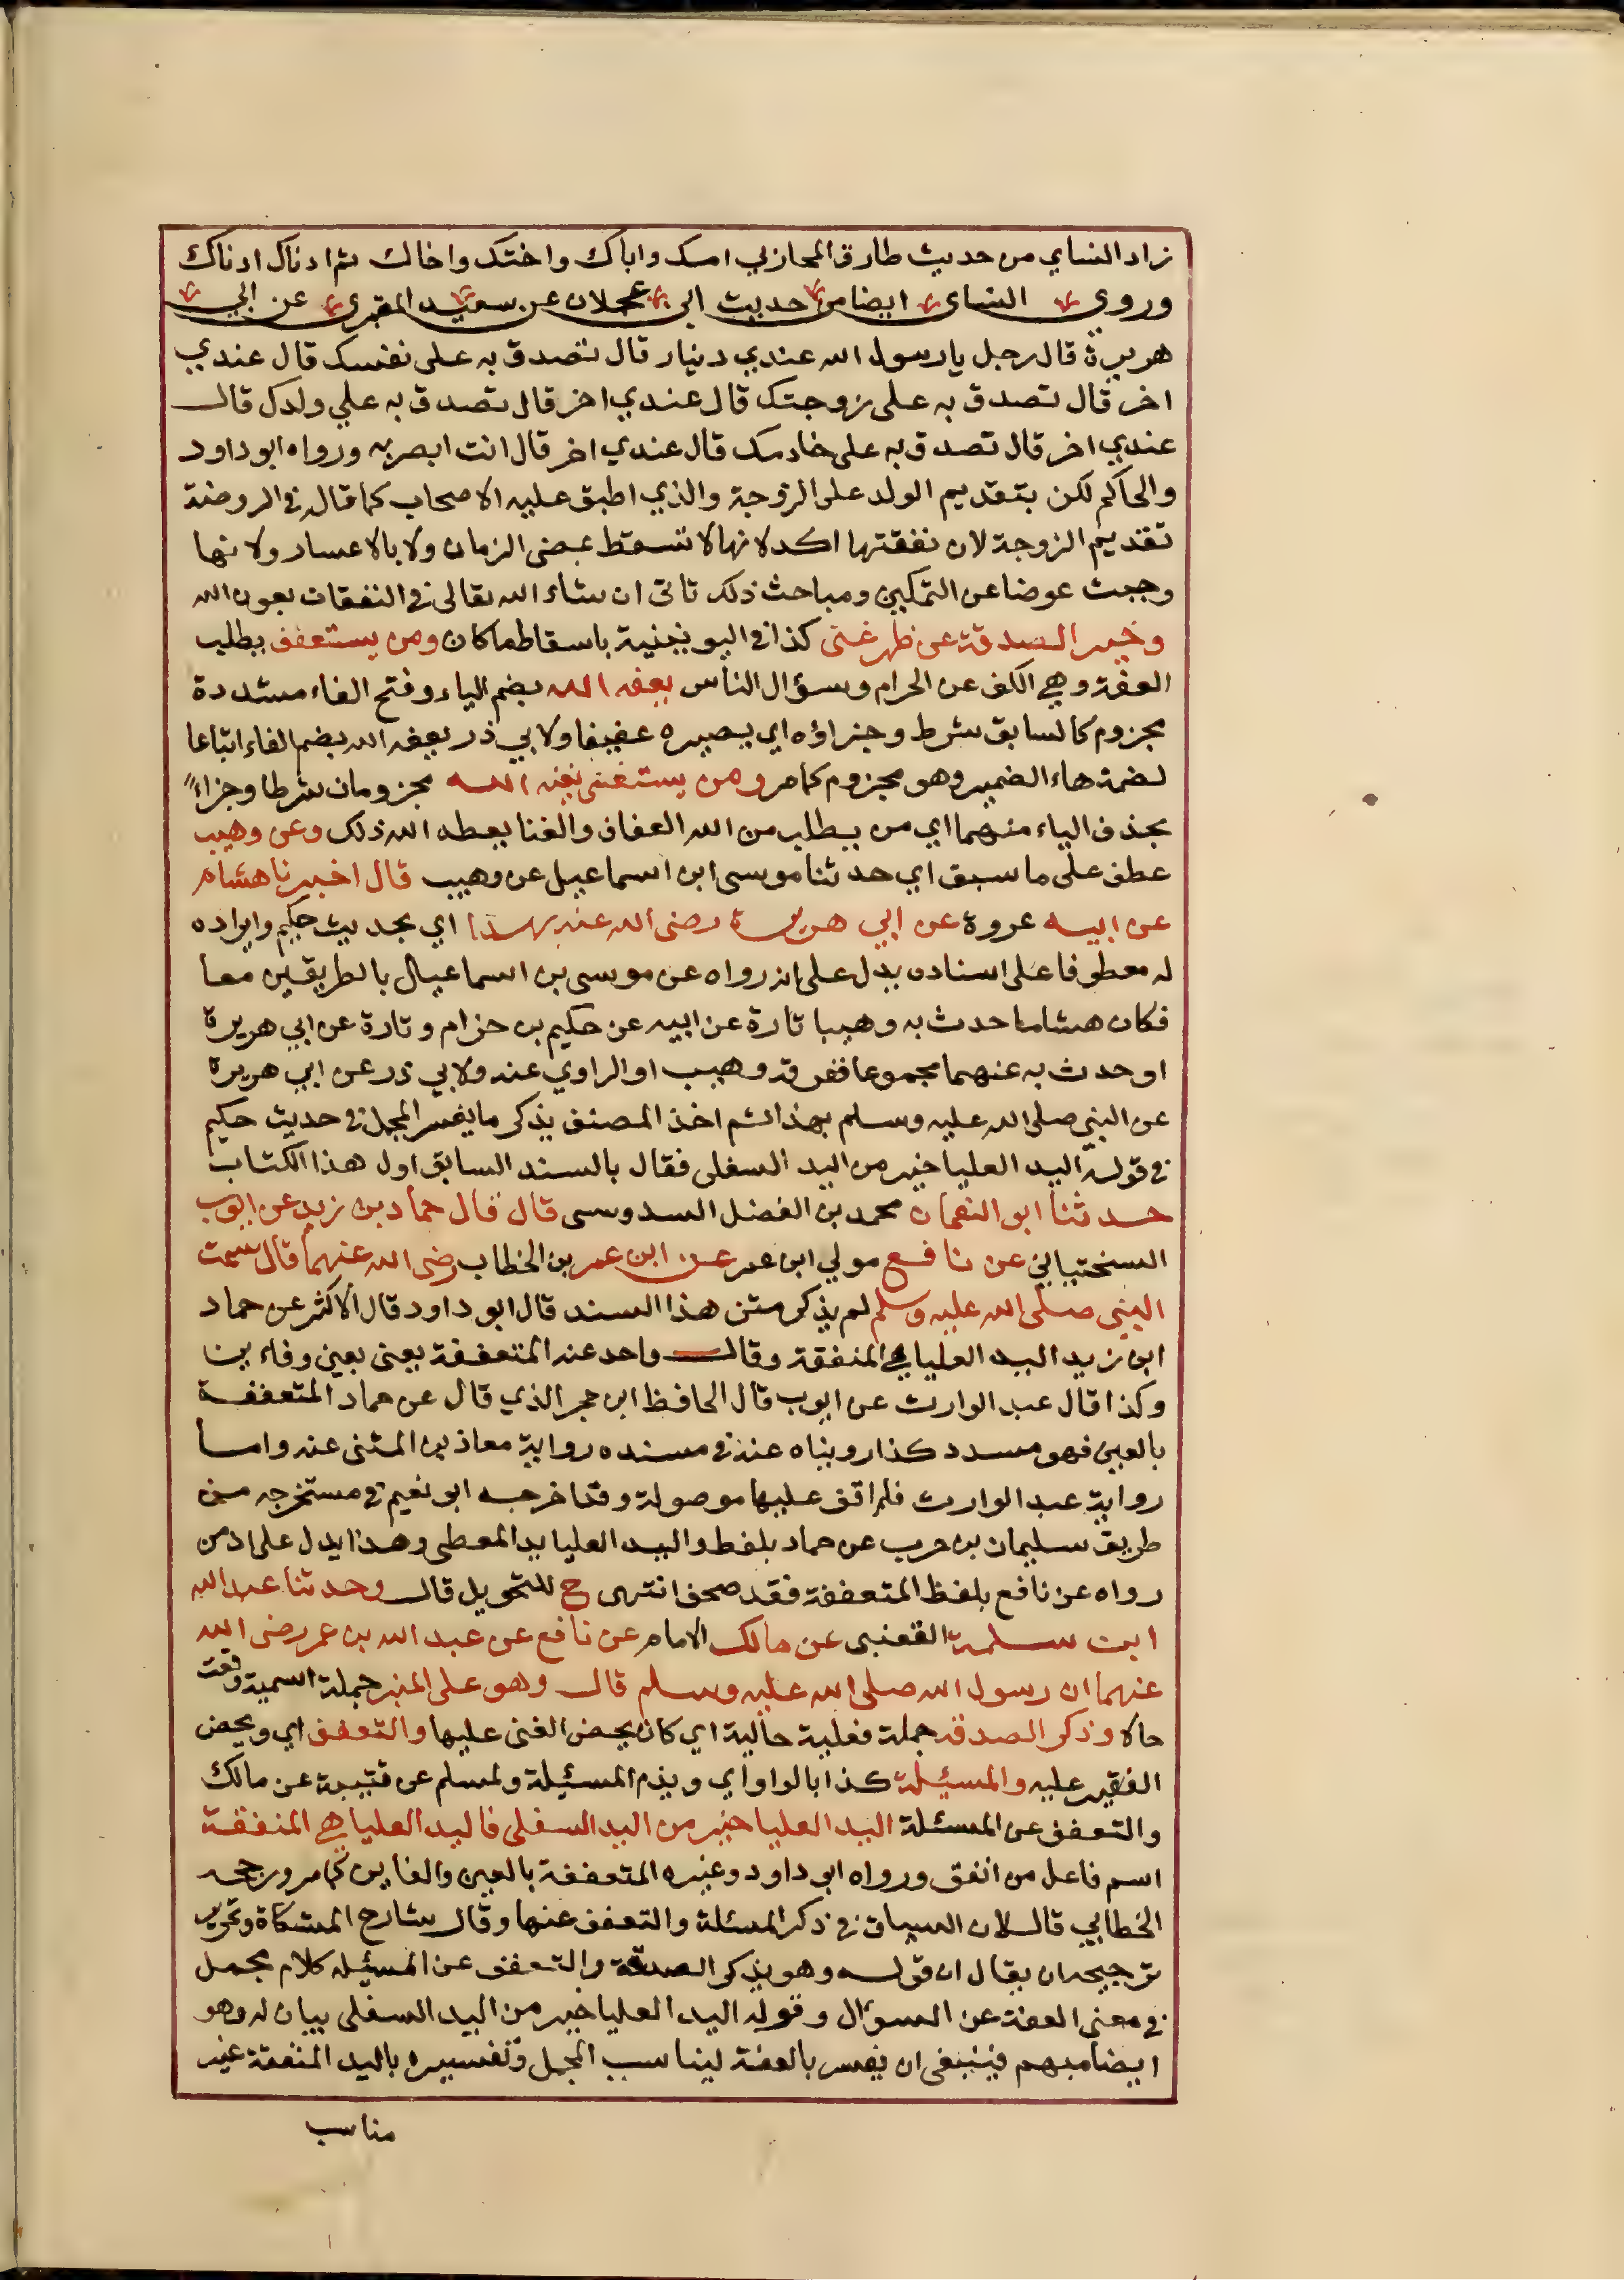 زاد النساي من حديث طارق المحازبي امك واباك واختك واخاك ثم ادناك ادناك
وروى النساى ايضا من حديث ابى عجلان عن سعيد المقبرى عن ابي
هريرة قال رجل يا رسول الله عندي دينار قال تصدق به على نفسك قال عندي
اخر قال تصدق به على زوجتك قال عندي اخر قال تصدق به علي ولدك قال
عندي اخر قال تصدق به على خادمك قال عندي اخر قال انت ابصر به ورواه ابو داود
والحاكم لكن بتقديم الولد على الزوجة والذي اطبق عليه الاصحاب كما قال في الروضة
تقديم الزوجة لان نفقتها اكد لانها لا تسقط بمضى الزمان ولا بالاعسار ولانها
وجبت عوضا عن التمكين ومباحث ذلك تاتى ان شاء الله تعالى في النفقات بعون الله
وخير الصدقة عن ظهر غنى كذا في اليونينية باسقاط ما كان ومن يستعفف يطلب
العفة وهي الكف عن الحرام وسؤال الناس يعفه الله بضم الياء وفتح الفاء مشددة
مجزوم كالسابق شرط وجزاؤه اي يصيره عفيفا ولابي ذر يعفه الله بضم الفاء اتباعا
لضمة هاء الضمير وهو مجزوم كما مر ومن يستغنى يغنه الله مجزومان شرطا وجزاءً
بحذف الياء منهما اي من يطلب من الله العفاف والغنا يعطه الله ذلك وعن وهيب
عطف على ما سبق اي حدثنا موسى ابن اسماعيل عن وهيب قال اخبرنا هشام
عن ابيه عروة عن ابي هريرة رضى الله عنه بهذا اي بحديث حكيم وايراده
له معطوفا على اسناده يدل على انه رواه عن موسى بن اسماعيل بالطريقين معا
فكان هشاما حدث به وهيبا تارة عن ابيه عن حكيم بن حزام وتارة عن ابي هريرة
او حدث به عنهما مجموعا ففرقه وهيب او الراوي عنه ولابي ذر عن ابي هريرة
عن النبي صلى الله عليه وسلم بهذا ثم اخذ المصنف يذكر ما يفسر المجمل في حديث حكيم
في قوله اليد العليا خير من اليد السفلى فقال بالسند السابق اول هذا الكتاب
حدثنا ابو النعمان محمد بن الفضل السدوسى قال قال حماد بن زيد عن ايوب
السختياني عن نافع مولي ابن عمر عن ابن عمر بن الخطاب رضى الله عنهما قال سمعت
النبي صلى الله عليه وسلم لم يذكر متن هذا السند قال ابو داود قال الاكثر عن حماد
ابن زيد اليد العليا هي المنفقة وقال واحد عنه المتعففة يعنى بعين وفاءين
وكذا قال عبد الوارث عن ايوب قال الحافظ ابن حجر الذي قال عن حماد المتعففة
بالعين فهو مسدد كذا رويناه عنه في مسنده رواية معاذ بن المثنى عنه واما
رواية عبد الوارث فلم اقف عليها موصولة وقد اخرجه ابو نعيم في مستخرجه من
طريق سليمان بن حرب عن حماد بلفظ واليد العليا يد المعطى وهذا يدل على ان من
رواه عن نافع بلفظ المتعففة فقد صحف انتهى ح للتحويل قال وحدثنا عبد الله
ابن سلمة القعنبى عن مالك الامام عن نافع عن عبد الله بن عمر رضى الله
عنهما ان رسول الله صلى الله عليه وسلم قال وهو على المنبر جملة اسمية وقعت
حالا وذكر الصدقه جملة فعلية حالية اي كان يحض الغنى عليها والتعفف اي ويحض
الفقير عليه والمسئلة كذا بالواو اي ويذم المسئيلة ولمسلم عن قتيبة عن مالك
والتعفف عن المسئلة اليد العليا خير من اليد السفلى فاليد العليا هي المنفقة
اسم فاعل من انفق ورواه ابو داود وغيره المتعففة بالعين والفاين كما مر ورجحه
الخطابي قال لان السياق في ذكر المسئلة والتعفف عنها وقال شارح المشكاة وتحرير
ترجيحه ان يقال ان قوله وهو يذكر الصدقة والتعفف عن المسئيله كلام مجمل
في معنى العفة عن السوال وقوله اليد العليا خير من اليد السفلى بيان له وهو
ايضا مبهم فينبغى ان يفسر بالعفة ليناسب المجمل وتفسيره باليد المنفقة غير
مناسب